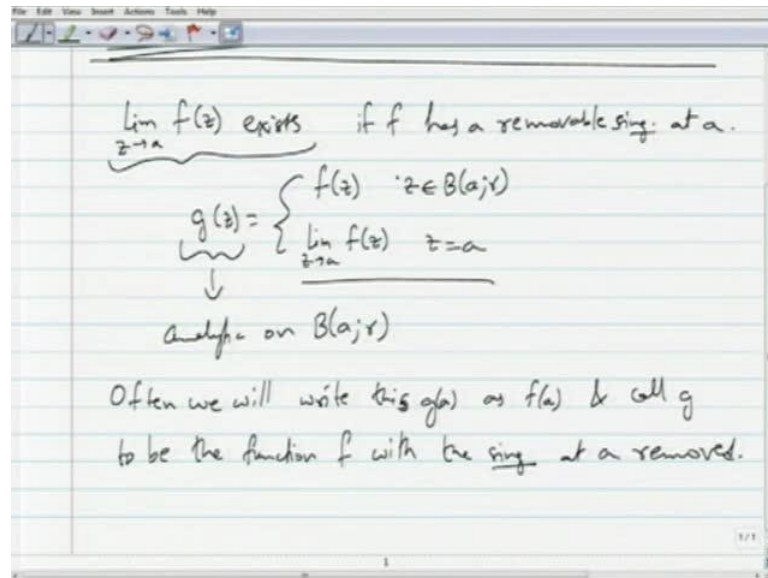 File Edit View Insert Actions Tools Help
lim f(z) exists if f has a removable sing. at a.
z→a
g(z) = { f(z) z ∈ B(a;r)
lim f(z) z = a
z→a
↓
analytic on B(a;r)
Often we will write this g(a) as f(a) & call g
to be the function f with the sing at a removed.
1/1
1